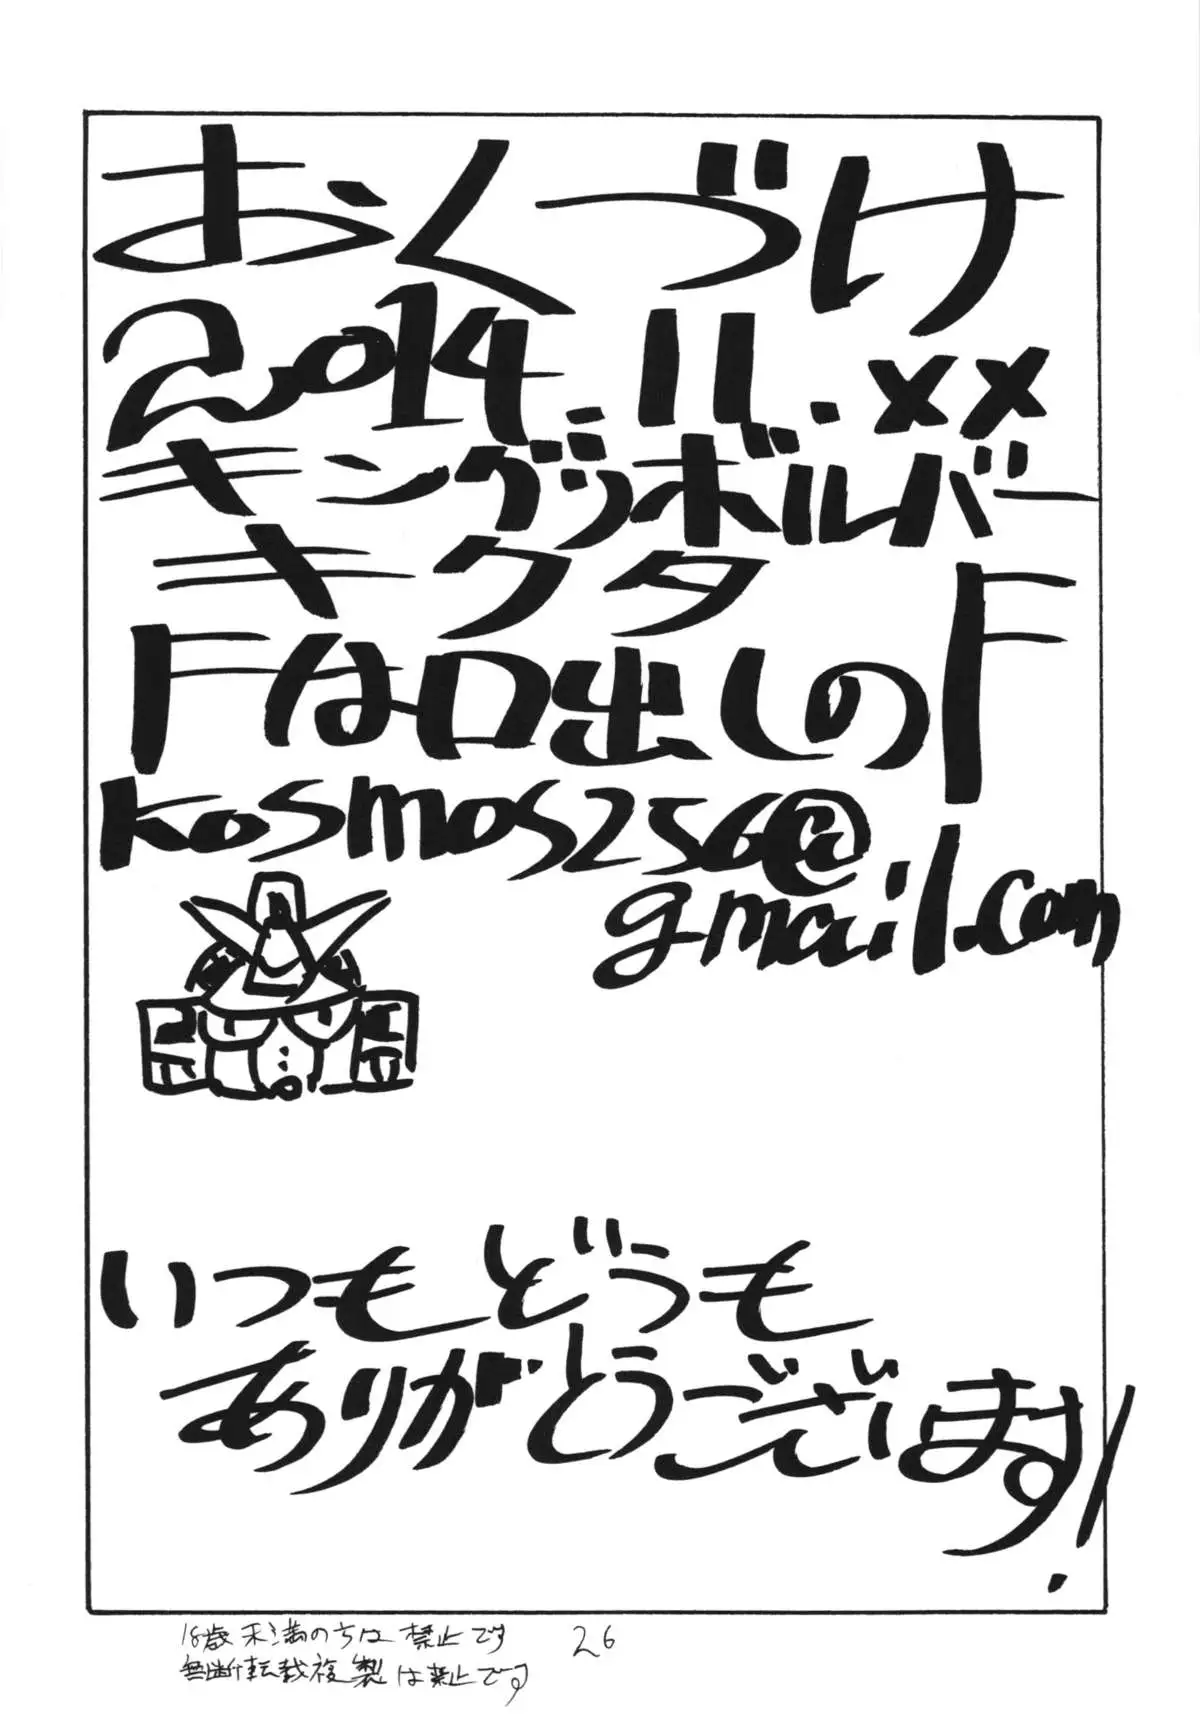 おくづけ
2014.11.××
キングリボルバー
キクタ
Fは口出しのF
kosmos256@
gmail.com
いつもどうも
ありがとうございます!
18歳未満の方は禁止です
無断転載複製は禁止です
26